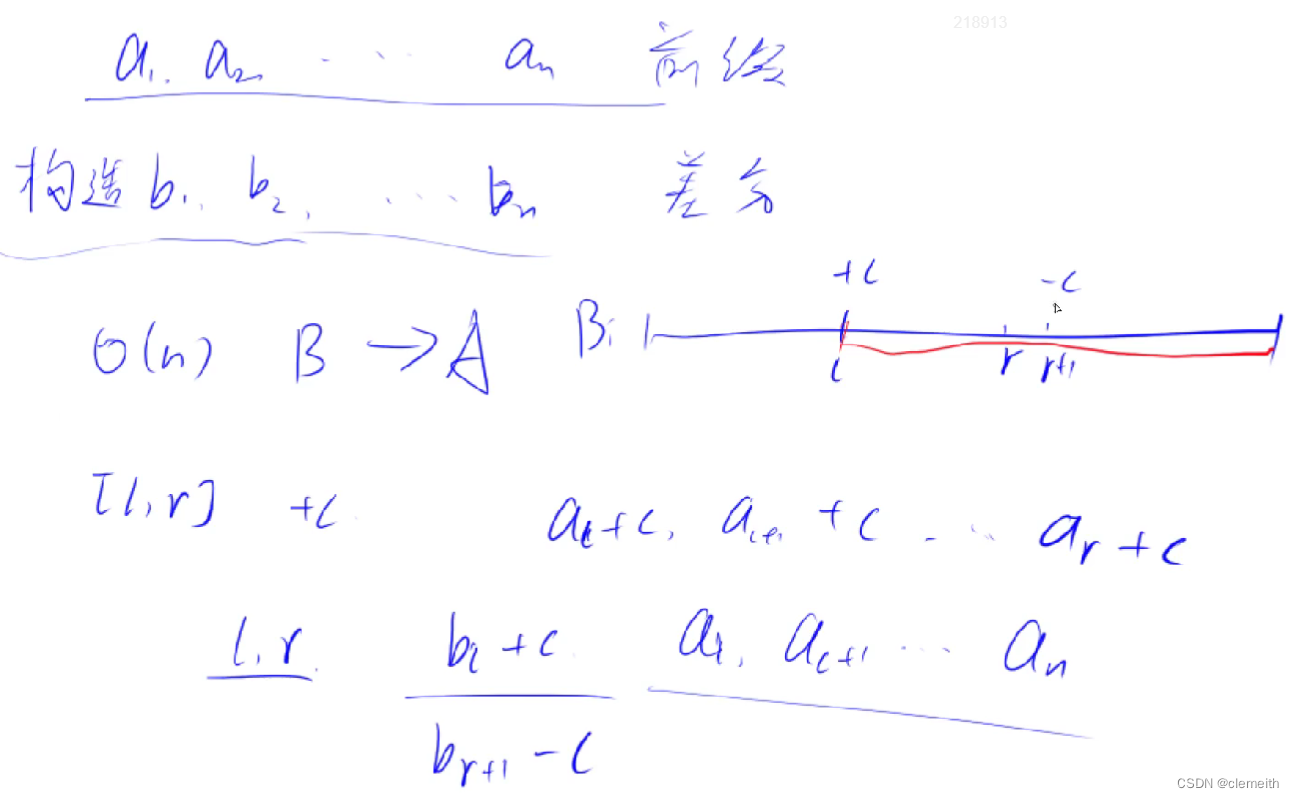 218913
a₁, a₂ ... aₙ 前缀
构造 b₁, b₂, ... bₙ 差分
+c -c
O(n) B → A B:
l r r+1
[l, r] +c aₗ+c, aₗ₊₁+c ... aᵣ+c
l, r bₗ+c aₗ, aₗ₊₁ ... aₙ
bᵣ₊₁-c
CSDN @clemeith